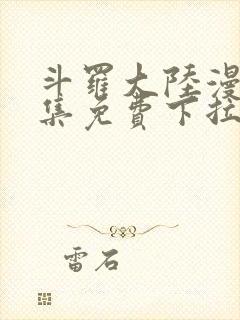 斗羅大陸漫
集免費下拉
雷石